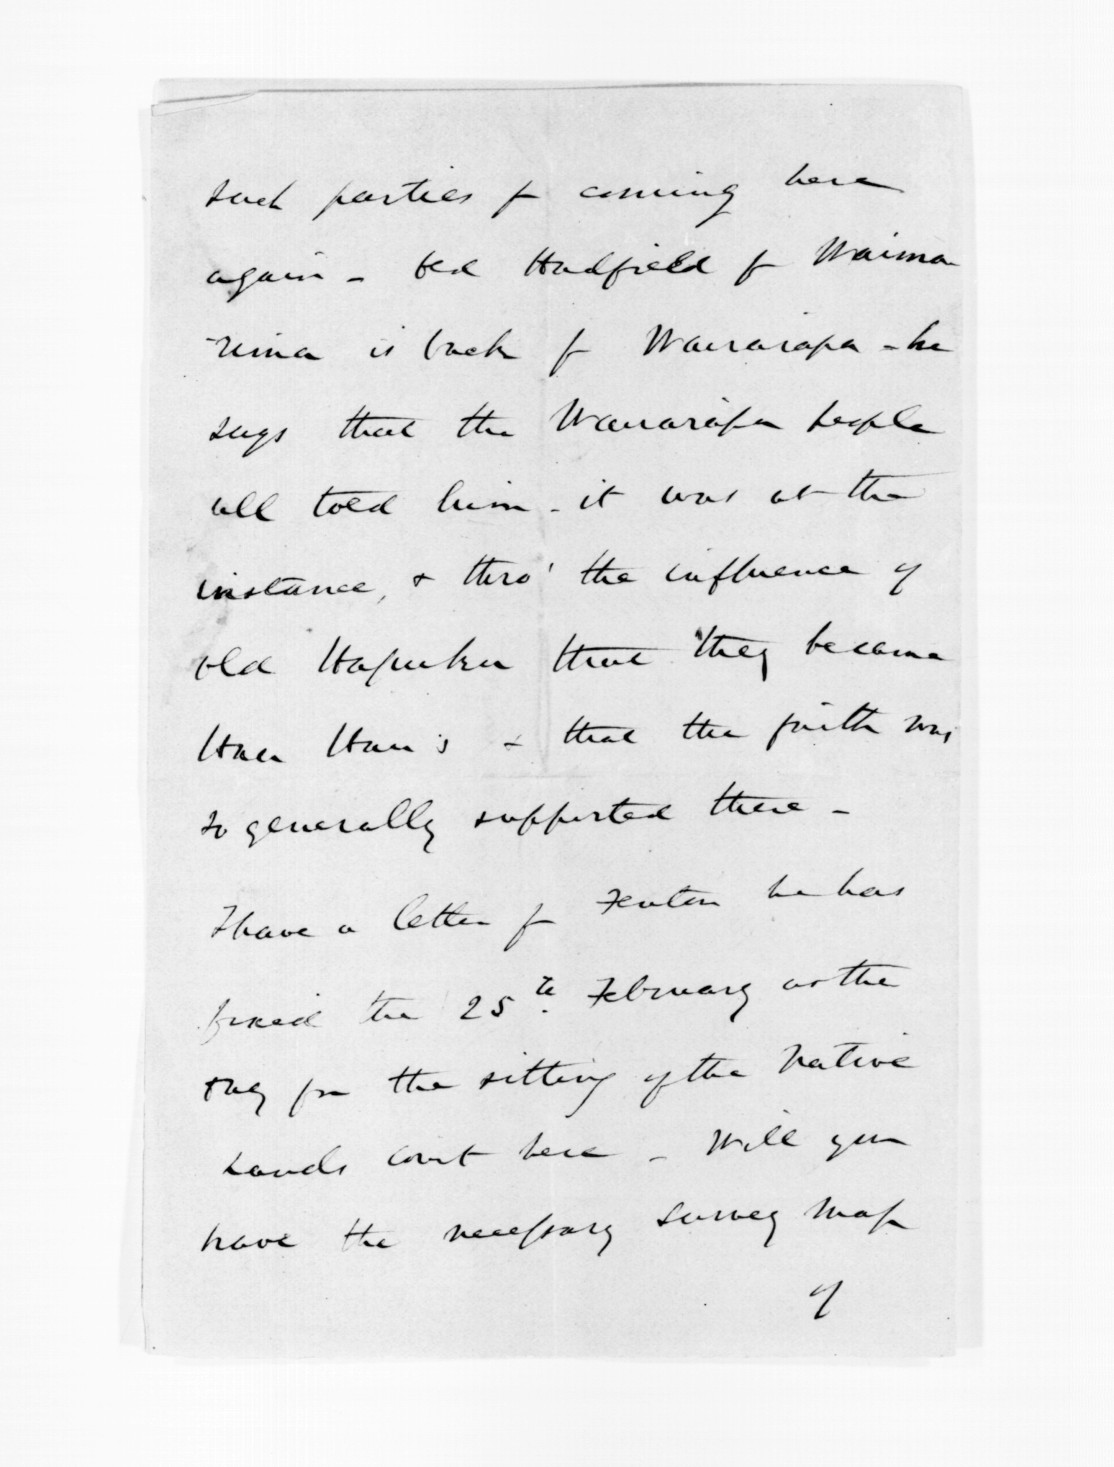 such parties f coming here
again - Old Hadfield f Waima
rima is back f Wairarapa - he
says that the Wairarapa people
all told him - it was at the
instance, & thro' the influence of
old Hapuku that they became
Hau Hau's & that the faith was
so generally supported there -
I have a letter f Fenton he has
fixed the 25th February as the
day for the sitting of the Native
Lands Court here - Will you
have the necessary survey map
of